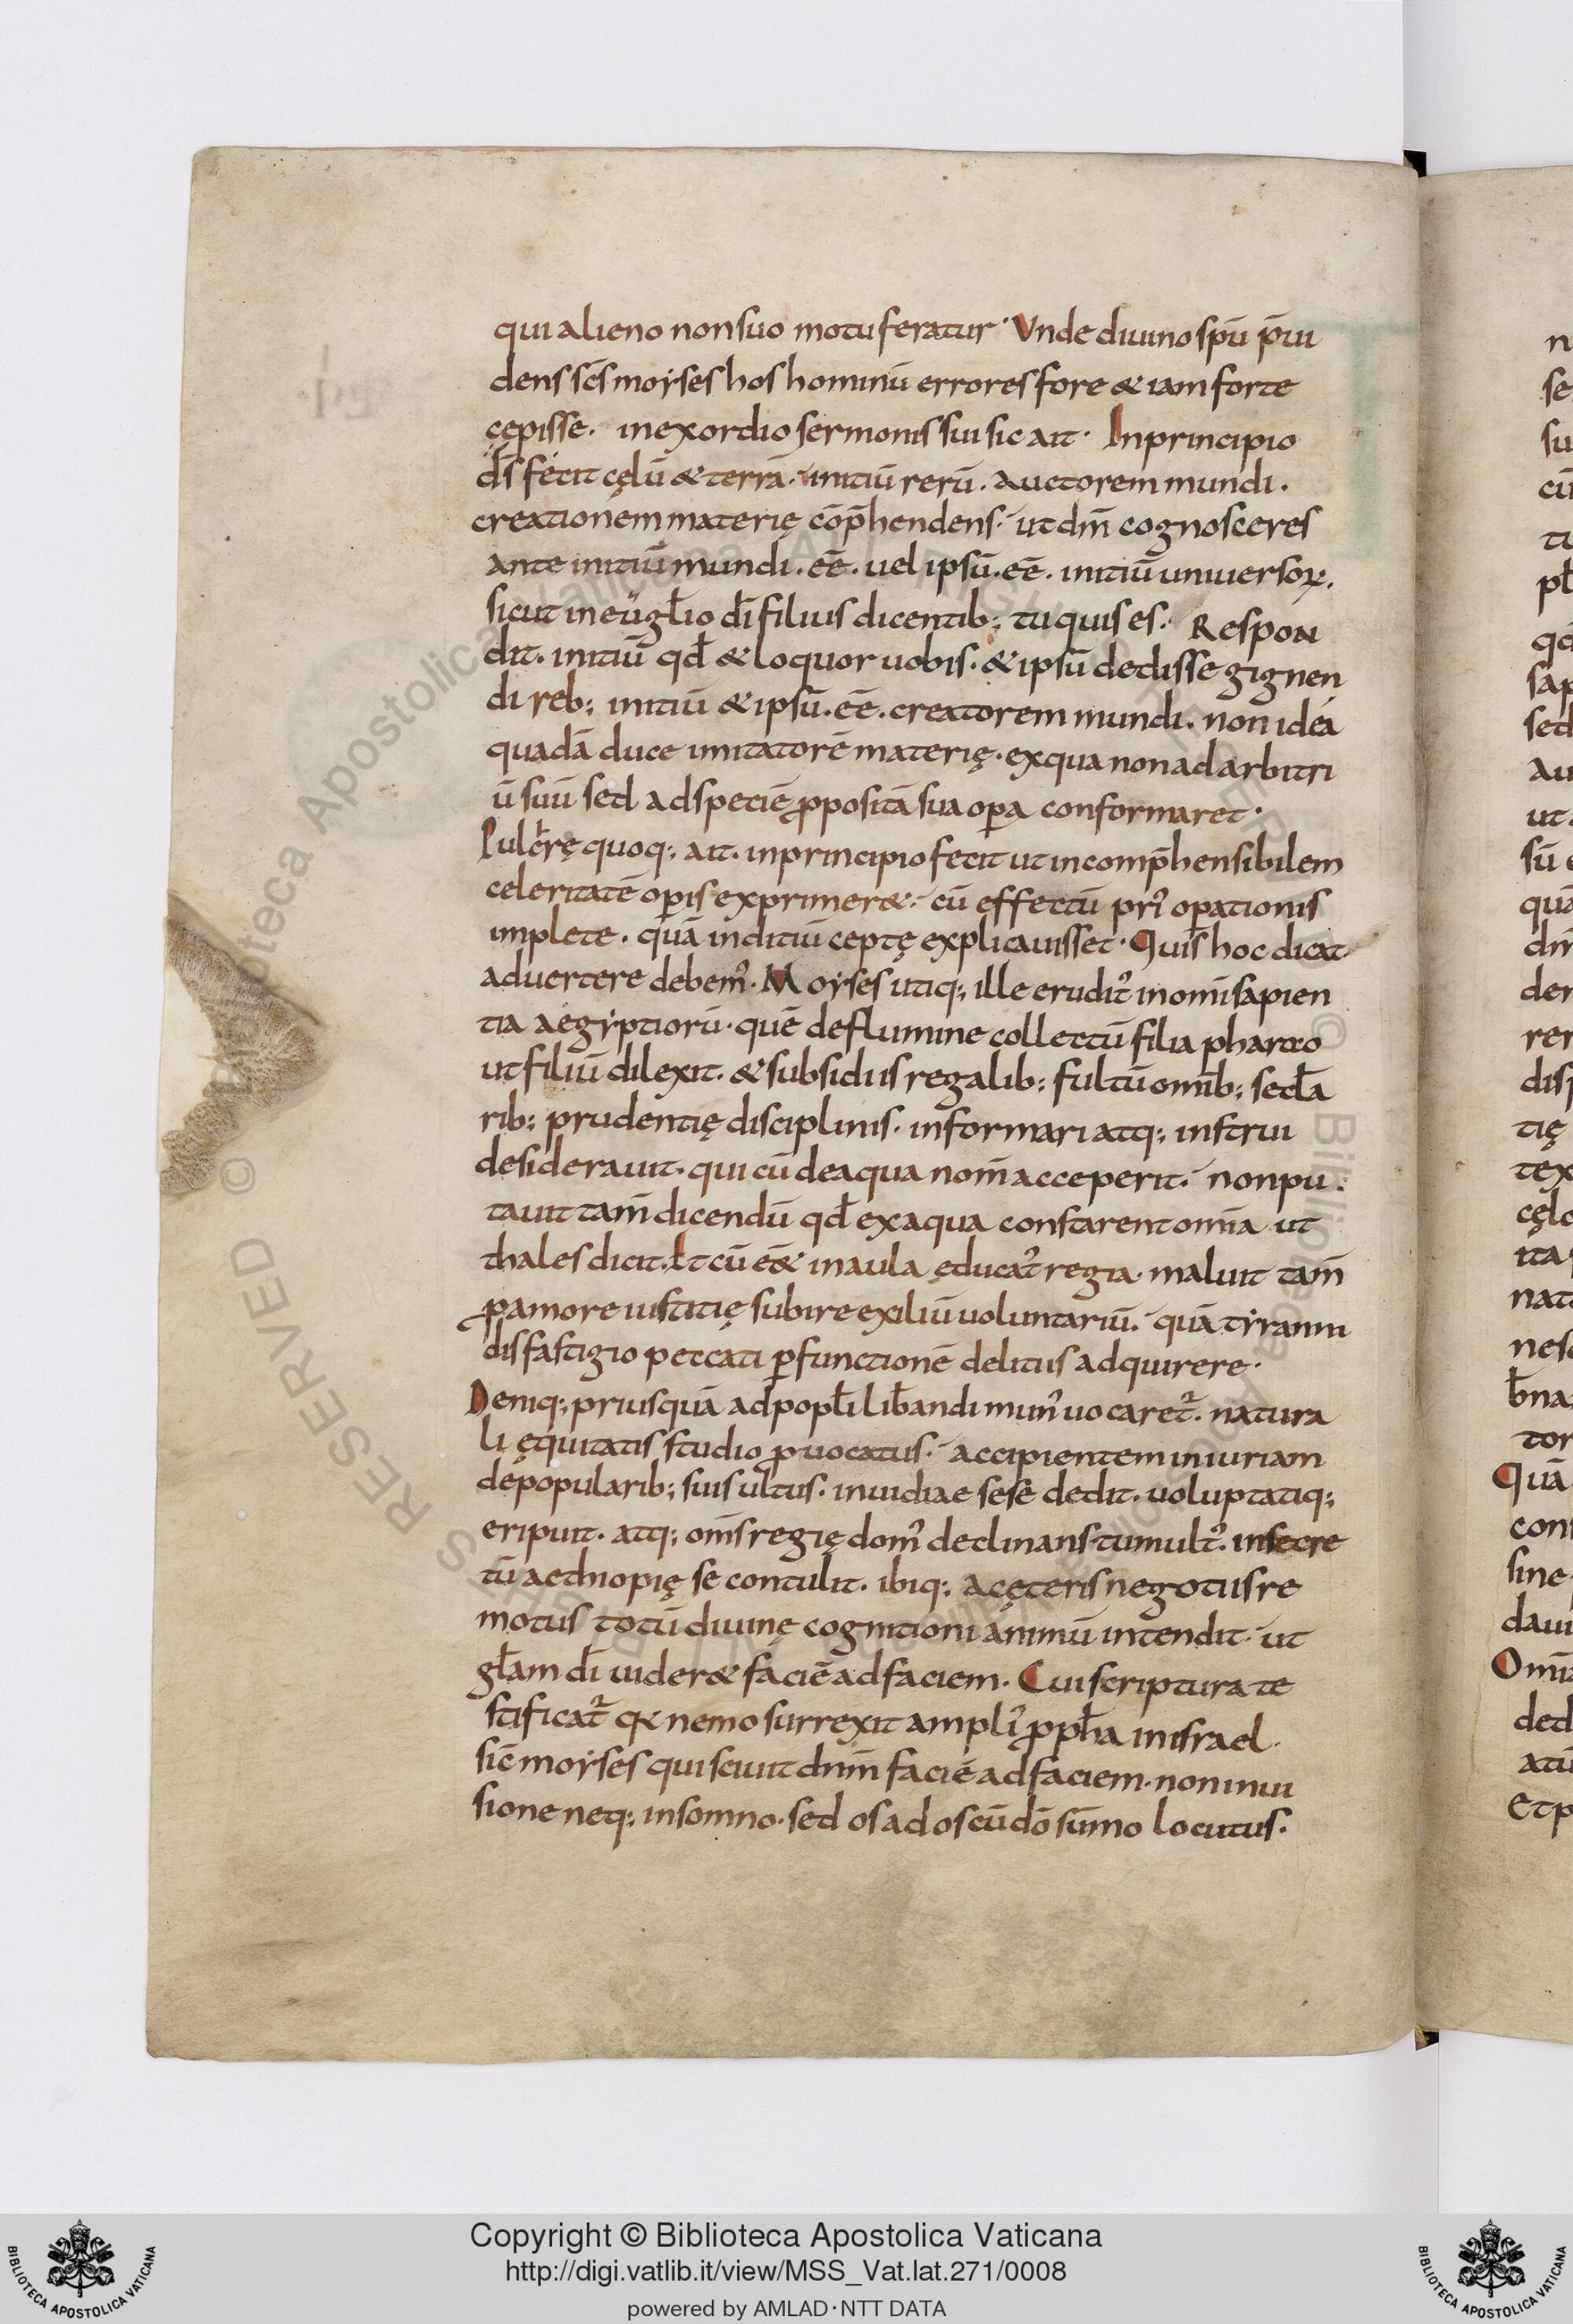 qui alieno non suo motu feratur· Vnde diuino sp̄u p̄ui
dens sc̄s moẏses hos hominū errores fore & iam forte
cępisse· in exordio sermonis sui sic ait· In principio
d̄s fecit cęlū & terrā· initiū rerū· auctorem mundi·
creationem materię cōp̄hendens· ut dm̄ cognosceres
ante initiū mundi· eē· uel ipsū· eē· initiū uniuersoꝝ·
sicut in eūgl̄io dī filius dicentib; tu quis es· Respon
dit· initiū qd̄ & loquor uobis· & ipsū dedisse gignen
di reb; initiū & ipsū· eē· creatorem mundi· non idea
quadā duce imitatorē materię· ex qua non ad arbitri
ū suū sed ad speciē ꝓpositā sua oꝑa conformaret·
Pulcr̄ę quoq; ait· in principio fecit ut incomp̄hensibilem
celeritatē oꝑis exprimer&· cū effectū pri᾽ oꝑationis
implete· quā inditiū ceptę explicauisset· Quis hoc dicat
aduertere debem᾽· Moẏses utiq; ille erudit᾽ in om̄i sapien
tia aegẏptiorū· quē de flumine collectū filia pharao
ut filiū dilexit· & subsidiis regalib; fultū omīb; secl̄a
rib; prudentię disciplinis· informari atq; instrui
desiderauit· qui cū de aqua nom̄ acceperit· non pu·
tauit tam̄ dicendū qd̄ ex aqua constarent om̄ia ut
thales dicit· Et cū eē& in aula ęducat᾽ regia· maluit tam̄
ꝓ amore iustitię subire exiliū uoluntariū· quā tẏranni
dis fastigio peccati ꝑfunctionē delitiis adquirere·
Deniq; priusquā ad popl̄i lib̄andi mun᾽ uocaret᷑· natura
li ęquitatis studio ꝓuocatus· accipientem iniuriam
de popularib; suis ultus· inuidiae sese dedit· uoluptatiq;
eripuit· atq; om̄s regię dom᾽ declinans tumult᾽· in secre
tū aethiopię se contulit· ibiq; a cęteris negotiis re
motus totū diuinę cognitioni animū intendit· ut
gl̄am dī uider& faciē ad faciem· Cui scriptura te
stificat᷑ q& nemo surrexit ampli᾽ ꝓph̄a in israel·
sic̄ moẏses qui sciuit dnm̄ faciē ad faciem· non in ui
sione neq; in somno· sed os ad os cū dō sūmo locutus·
Copyright © Biblioteca Apostolica Vaticana
http://digi.vatlib.it/view/MSS_Vat.lat.271/0008
powered by AMLAD·NTT DATA